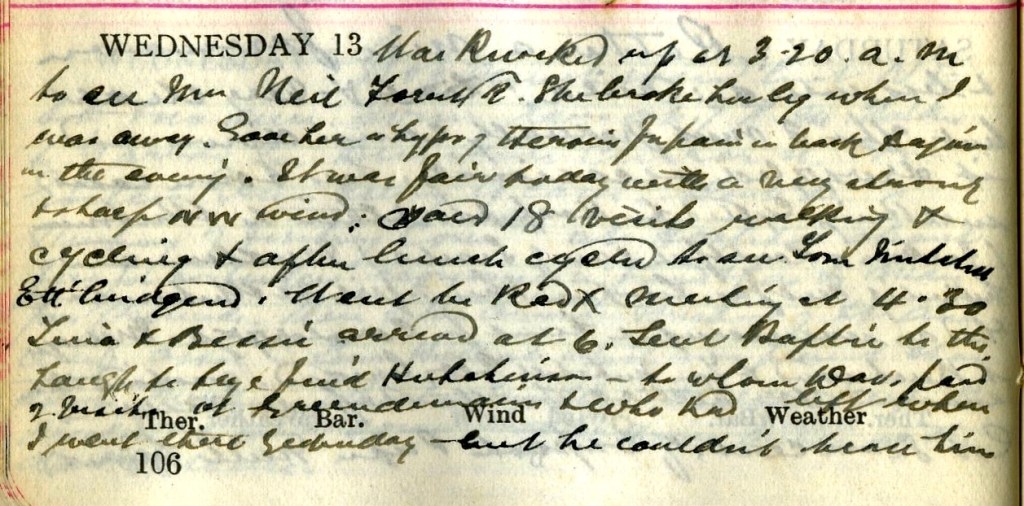 WEDNESDAY 13 Was Knocked up at 3-20. a. m
to see Mrs Neil . She broke her leg when I
was away. Gave her a hypo of Heroin for pain in back & again
in the evening. It was fair today with a very strong
& sharp NW wind: paid 18 visits walking &
cycling & after lunch cycled to see Tom
Ettbridgend. Went to Red X meeting at 4.30
& Bessie arrived at 6. Sent to the
Haugh to Hutchinson - to whom Davs paid
a visit at & who had left when
Ther. Bar. Wind Weather
I went there yesterday - but he couldn't trace him
106